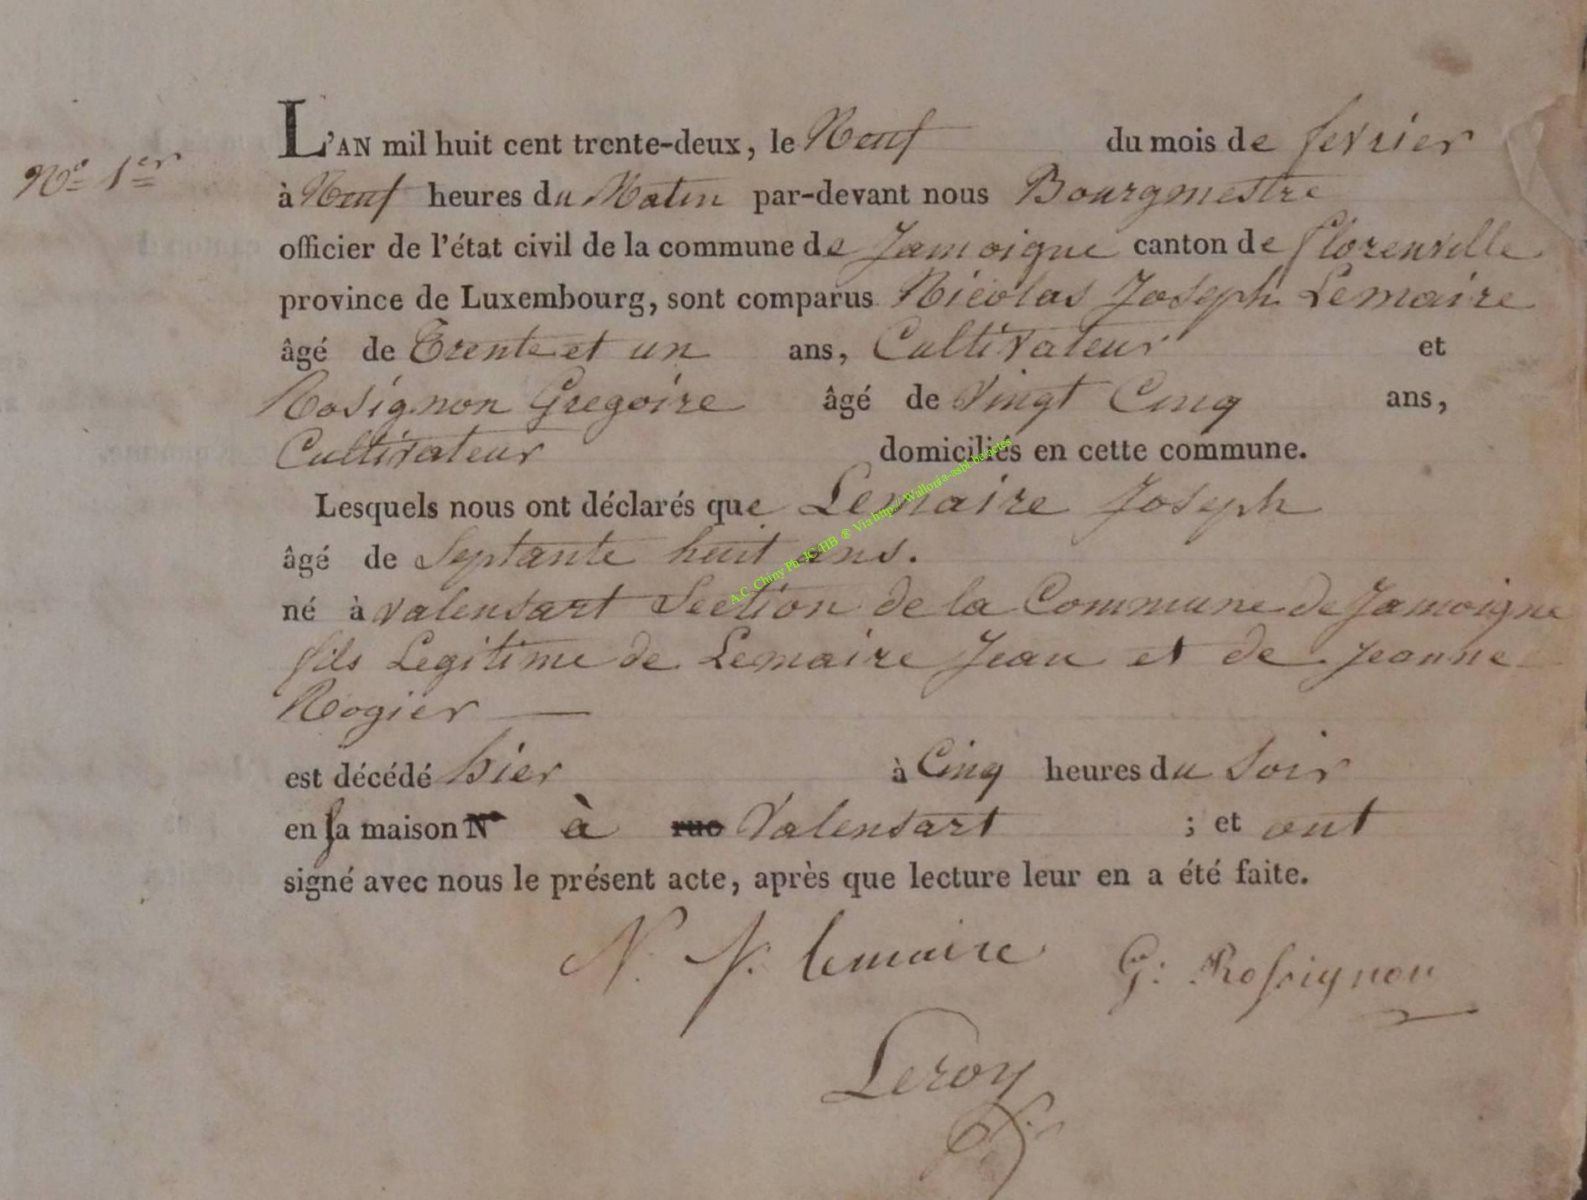 N.º 1.er
L'AN mil huit cent trente-deux, le Neuf du mois de fevrier
à Neuf heures du Matin par-devant nous Bourgmestre
officier de l'état civil de la commune de Jamoigne canton de florenville
province de Luxembourg, sont comparus Nicolas Joseph Lemaire
âgé de Trente et un ans, Cultivateur et
Rosignon Gregoire âgé de Vingt Cinq ans,
Cultivateur domiciliés en cette commune.
Lesquels nous ont déclarés que Lemaire Joseph
âgé de Septante huit ans.
né à Valensart Section de la Commune de Jamoigne
fils Legitime de Lemaire Jean et de Jeanne
Rogier
est décédé hier à Cinq heures du Soir
en sa maison N° à rue Valensart ; et ont
signé avec nous le présent acte, après que lecture leur en a été faite.
N. J. lemaire G: Rossignon
Leroy
A.C. Chiny Ph JC-HB ® Via http:// Wallonia-asbl.be/actes